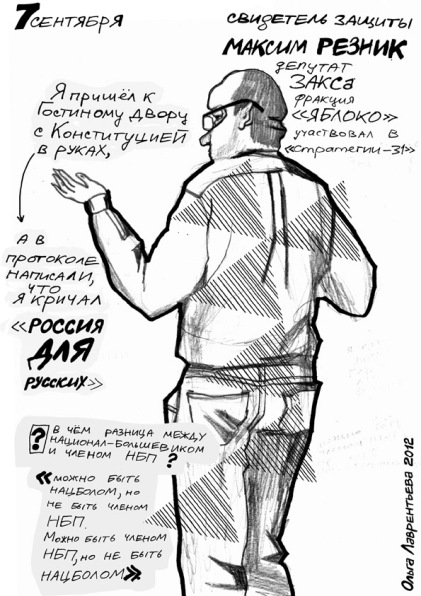 7 СЕНТЯБРЯ
СВИДЕТЕЛЬ ЗАЩИТЫ
МАКСИМ РЕЗНИК
ДЕПУТАТ
ЗАКСА
ФРАКЦИЯ
«ЯБЛОКО»
УЧАСТВОВАЛ В
«СТРАТЕГИИ-31»
Я ПРИШЁЛ К
ГОСТИНОМУ ДВОРУ
С КОНСТИТУЦИЕЙ
В РУКАХ,
А В
ПРОТОКОЛЕ
НАПИСАЛИ,
ЧТО
Я КРИЧАЛ
«РОССИЯ
ДЛЯ
РУССКИХ»
? В ЧЁМ РАЗНИЦА МЕЖДУ
НАЦИОНАЛ-БОЛЬШЕВИКОМ
И ЧЛЕНОМ НБП?
«МОЖНО БЫТЬ
НАЦБОЛОМ, НО
НЕ БЫТЬ ЧЛЕНОМ
НБП.
МОЖНО БЫТЬ ЧЛЕНОМ
НБП, НО НЕ БЫТЬ
НАЦБОЛОМ»
Ольга Лаврентьева 2012